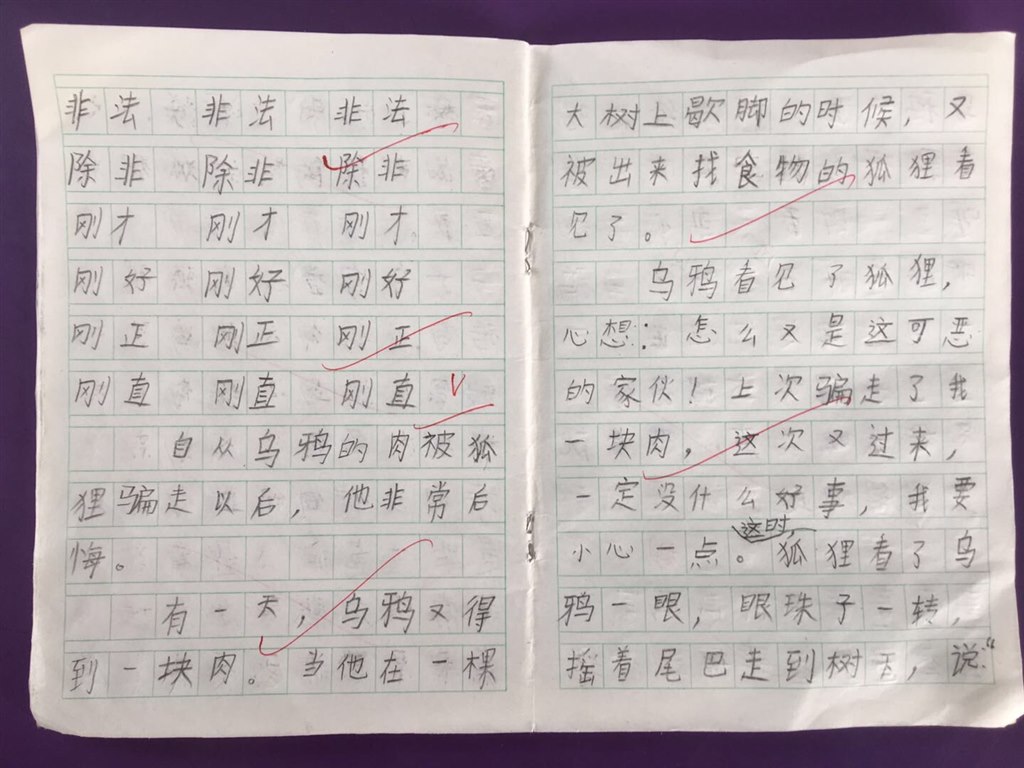 非法 非法 非法
除非 除非 除非
刚才 刚才 刚才
刚好 刚好 刚好
刚正 刚正 刚正
刚直 刚直 刚直
自从乌鸦的肉被狐
狸骗走以后，他非常后
悔。
有一天，乌鸦又得
到一块肉。当他在一棵
大树上歇脚的时候，又
被出来找食物的狐狸看
见了。
乌鸦看见了狐狸，
心想：怎么又是这可恶
的家伙！上次骗走了我
一块肉，这次又过来，
一定没什么好事，我要
小心一点。这时，狐狸看了乌
鸦一眼，眼珠子一转，
摇着尾巴走到树下，说：“